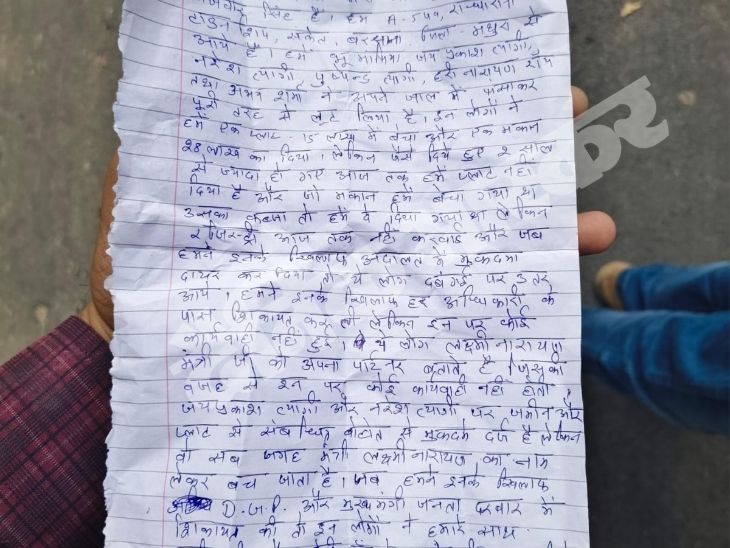 सिंह है। हम A-549, राधारानी
टाउनशिप, संकेत, बरसाना, जिला-मथुरा से
आये है। हमें भू माफिया जय प्रकाश त्यागी,
नरेश त्यागी, पुष्पेन्द्र त्यागी, हरी नारायण रॉय
तथा अमन शर्मा ने अपने जाल में फसाकर
पूरी तरह से लूट लिया है। इन लोगों ने
हमें एक प्लाट - 15 लाख में बेचा और एक मकान
28 लाख का दिया। लेकिन पैसे दिये हुए 2 साल
से ज्यादा हो गए आज तक हमें प्लाट नहीं
दिया है और जो मकान हमें बेचा गया था
उसका कब्जा तो हमें दे दिया गया था लेकिन
रजिस्ट्री आज तक नहीं करवाई और जब
हमने इनके खिलाफ अदालत में मुकदमा
दायर कर दिया तो ये लोग दबंगई पर उतर
आये। हमने इनके खिलाफ हर अधिकारी के
पास शिकायत कर ली लेकिन इन पर कोई
कार्यवाही नहीं हुई। ये लोग लक्ष्मी नारायण
मंत्री जी को अपना पार्टनर बताते है। जिसकी
वजह से इन पर कोई कार्यवाही नहीं होती,
जय प्रकाश त्यागी और नरेश त्यागी पर जमीन और
प्लाट से संबंधित बोहोत से मुकदमे दर्ज है लेकिन
वो सब जगह मंत्री लक्ष्मी नारायण का नाम
लेकर बच जाता है। जब हमने इनके खिलाफ
D.G.P. और मुख्यमंत्री जनता दरबार में
शिकायत की तो इन लोगों ने हमारे साथ